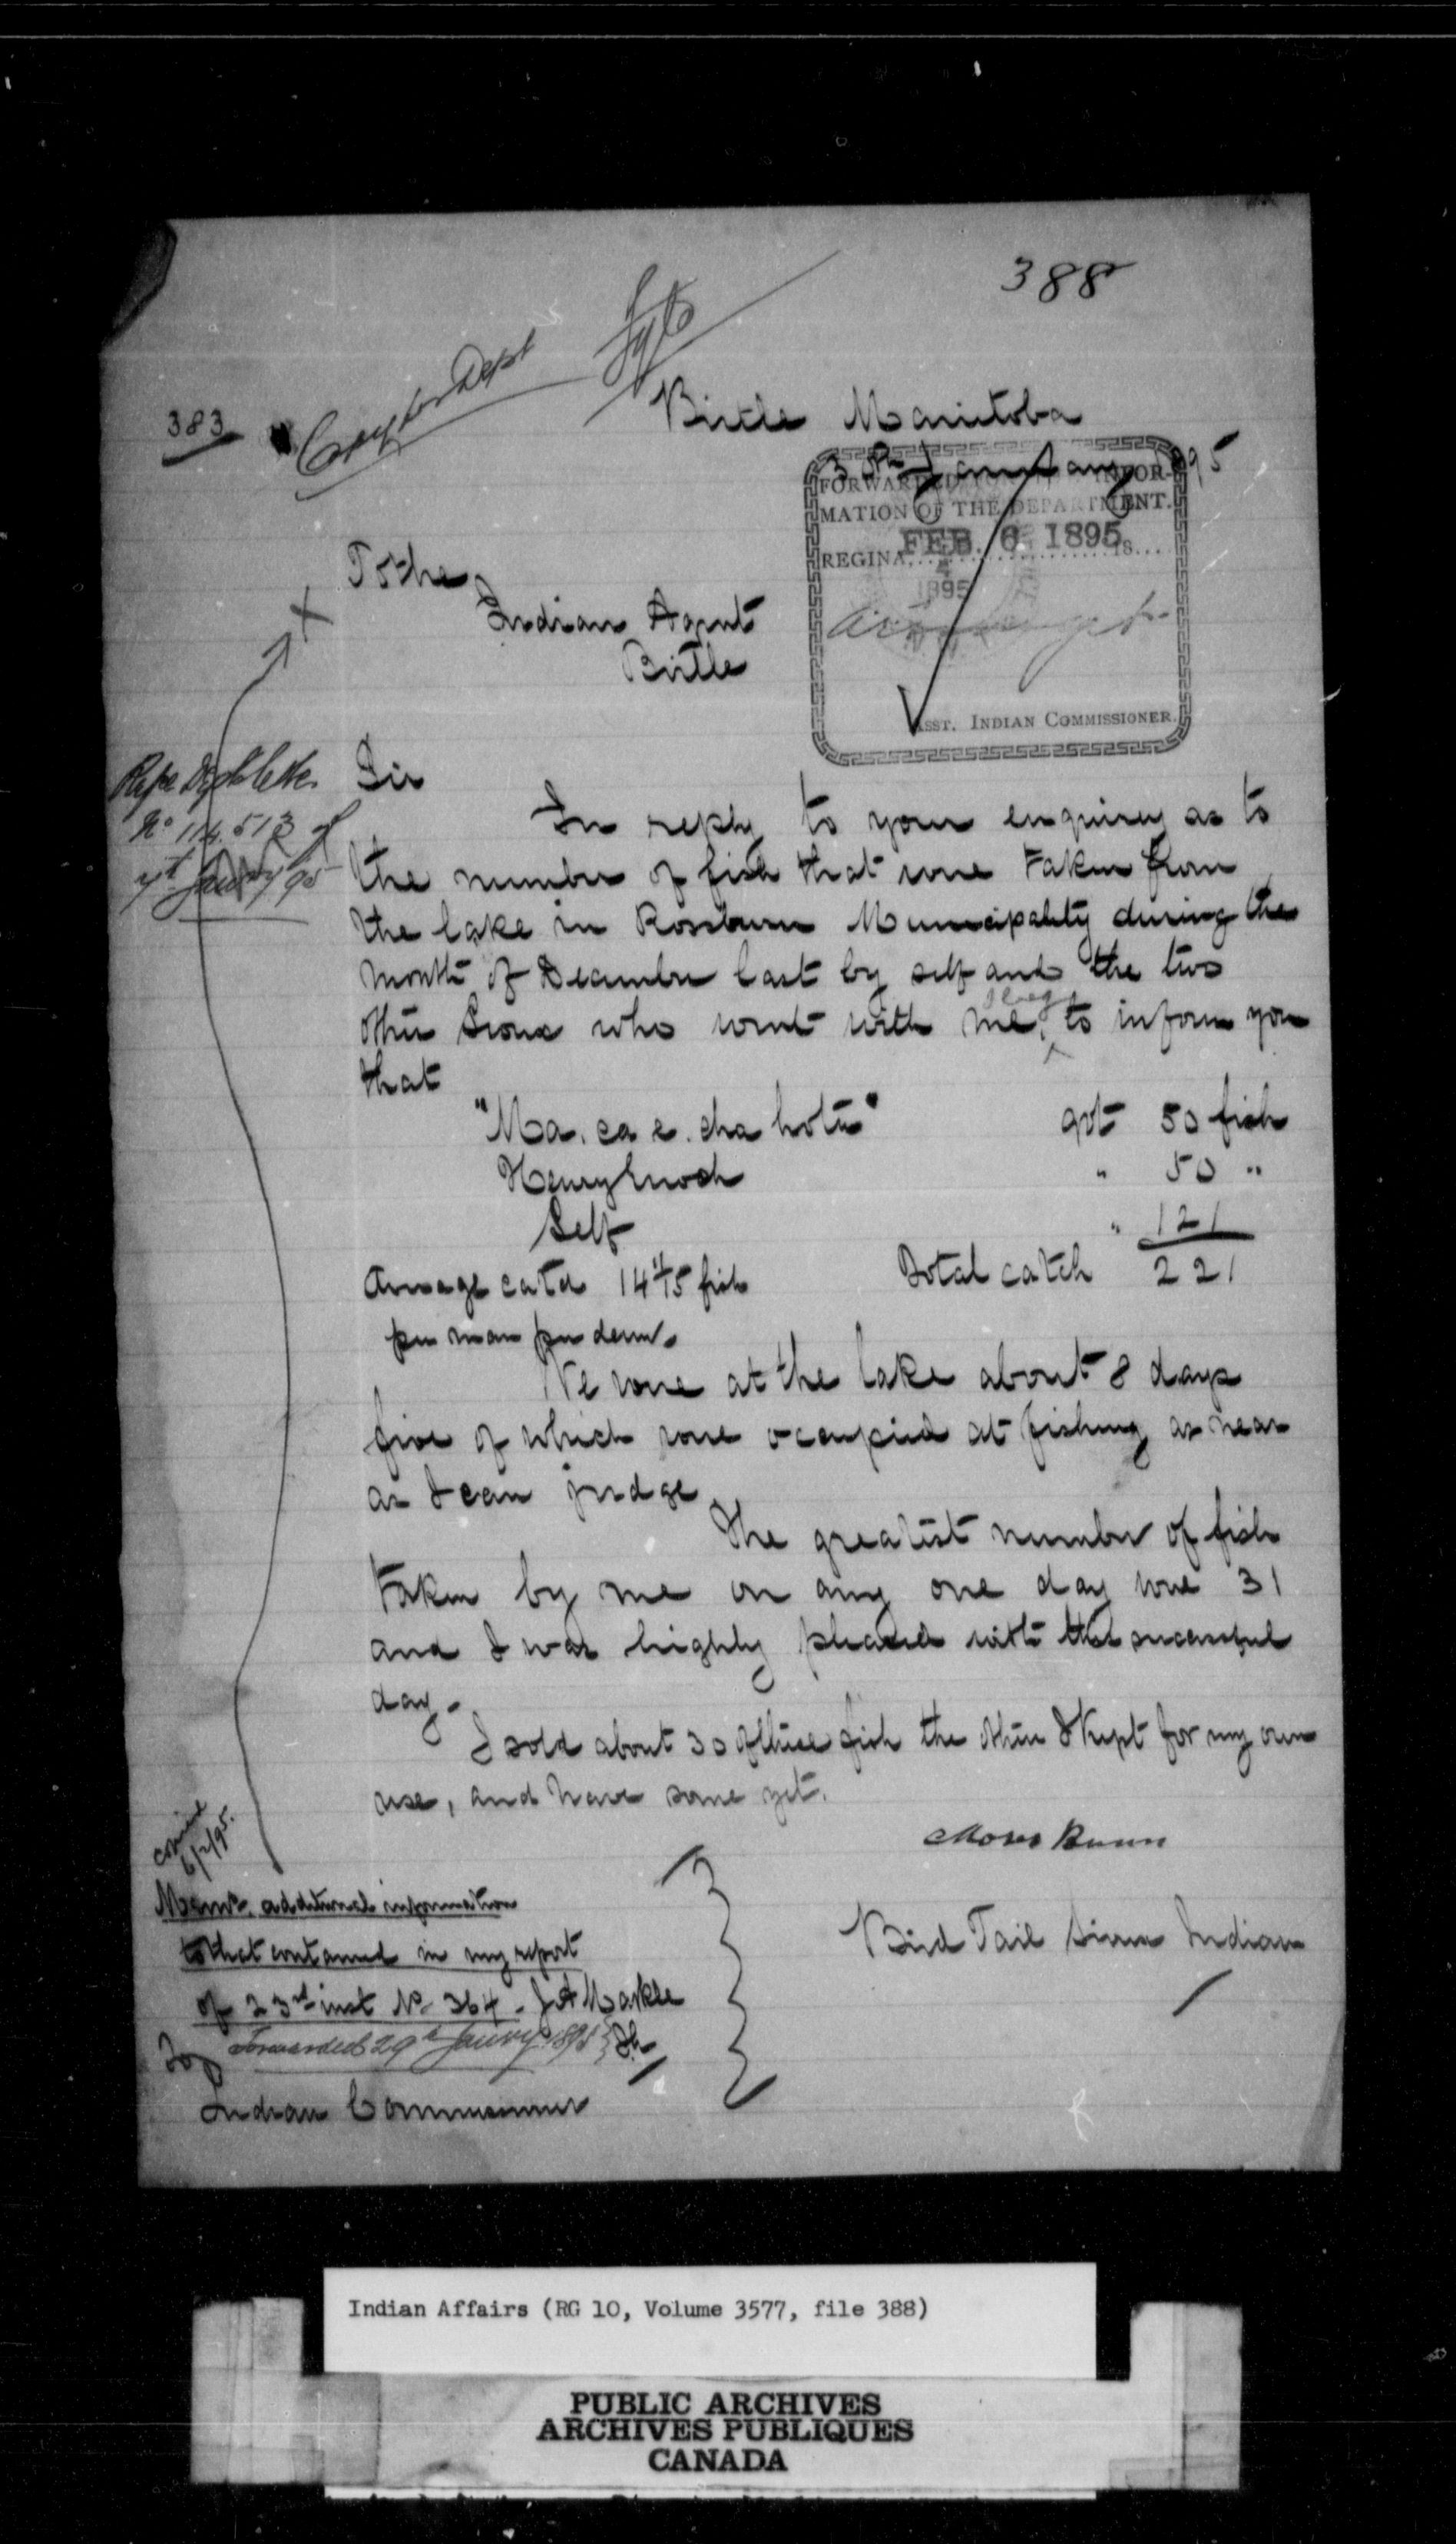 388
383
Copy for Dept
Birtle Manitoba
30th January 95
FORWARDED INFOR-
MATION OF THE DEPARTMENT.
REGINA, FEB. 6. 1895 18....
4
1895
ASST. INDIAN COMMISSIONER.
To the
Indian Agent
Birtle
No 114.513 of
Sir
In reply to your enquiry as to
the number of fish that were taken from
the lake in Rossburn Municipality during the
month of December last by self and the two
other Sioux who went with me, I beg to inform you
that
"Ma. ca e. cha hota" got 50 fish
Henry Enoch " 50 "
Self " 121
Average catch 14 11/15 fish Total catch 221
per man per diem.
We were at the lake about 8 days
five of which were occupied at fishing as near
as I can judge
The greatest number of fish
taken by me on any one day were 31
and I was highly pleased with the successful
day.
I sold about 30 of these fish the others I kept for my own
use, and have some yet.
Moses Bunn
Bird Tail Sioux Indian
6/2/95.
Memo. additional information
to that contained in my report
of 23rd inst No 364 - J A Markle
Forwarded 29th Jany 1895
Indian Commissioner
Indian Affairs (RG 10, Volume 3577, file 388)
PUBLIC ARCHIVES
ARCHIVES PUBLIQUES
CANADA